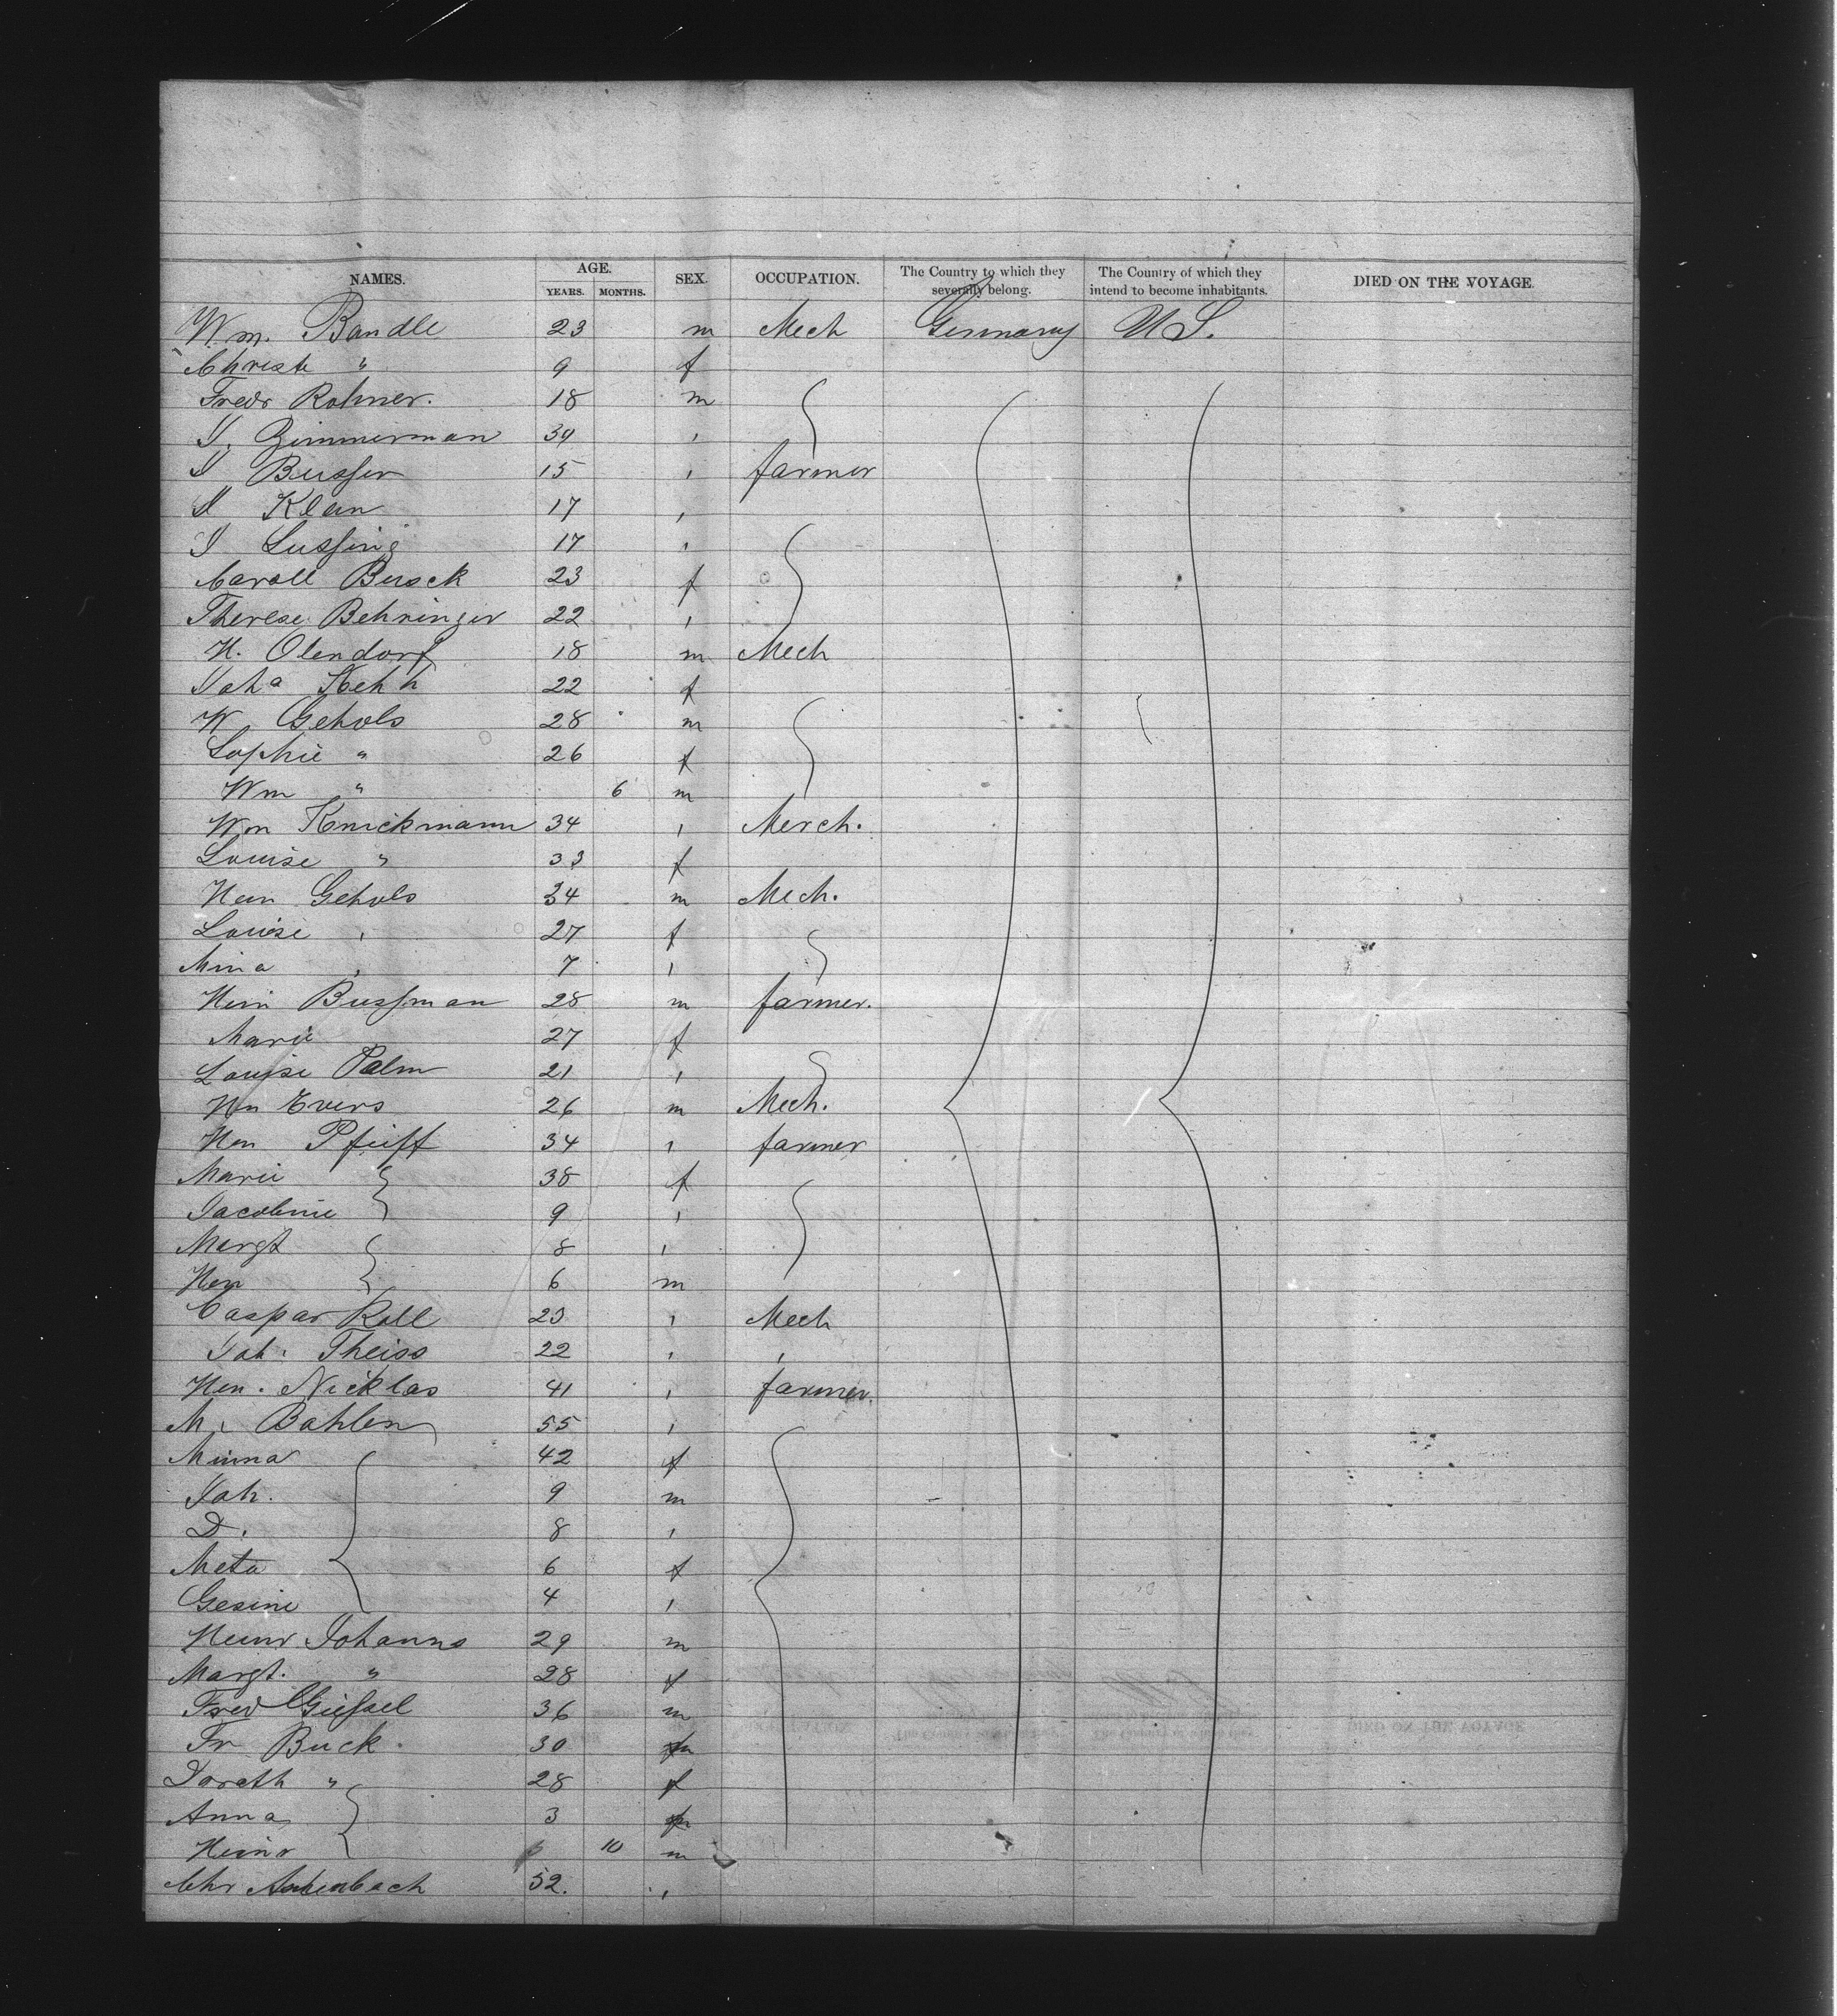 NAMES. AGE. SEX. OCCUPATION. The Country to which they severally belong. The Country of which they intend to become inhabitants. DIED ON THE VOYAGE.
YEARS. MONTHS.
Wm. Bandle 23 m Mech Germany U S.
Christe " 9 f
Fredr Rohner. 18 m
J. Zimmerman 39 '
J Busser 15 ' farmer
A Klein 17 '
J Lussing 17 '
Caroll Busck 23 f
Therese Behringer 22 '
H. Olendorf 18 m Mech
Joha Kehh 22 f
W Gehols 28 m
Sophie " 26 f
Wm " 6 m
Wm Knickmann 34 ' Merch.
Louise " 33 f
Hein Gehols 34 m Mech.
Louise ' 27 f
Mina ' 7 '
Hein Bussman 28 m farmer.
Marie 27 f
Louise Palm 21 '
Hn Evers 26 m Mech.
Hen Pfeiff 34 ' farmer
Marie 38 f
Jacobine 9 '
Margt 8 '
Hen 6 m
Caspar Roll 23 ' Mech
Joh. Theiss 22 ' '
Hen. Nicklas 41 ' farmer.
M. Bahlen 55 '
Minna 42 f
Joh. 9 m
D. 8 '
Meta 6 f
Gesine 4 '
Heinr Johanns 29 m
Margt. " 28 f
Fred Giessel 36 m
Fr Buck. 30 m
Doreth " 28 f
Anna 3 f
Heinr 10 m
Chr 52. '